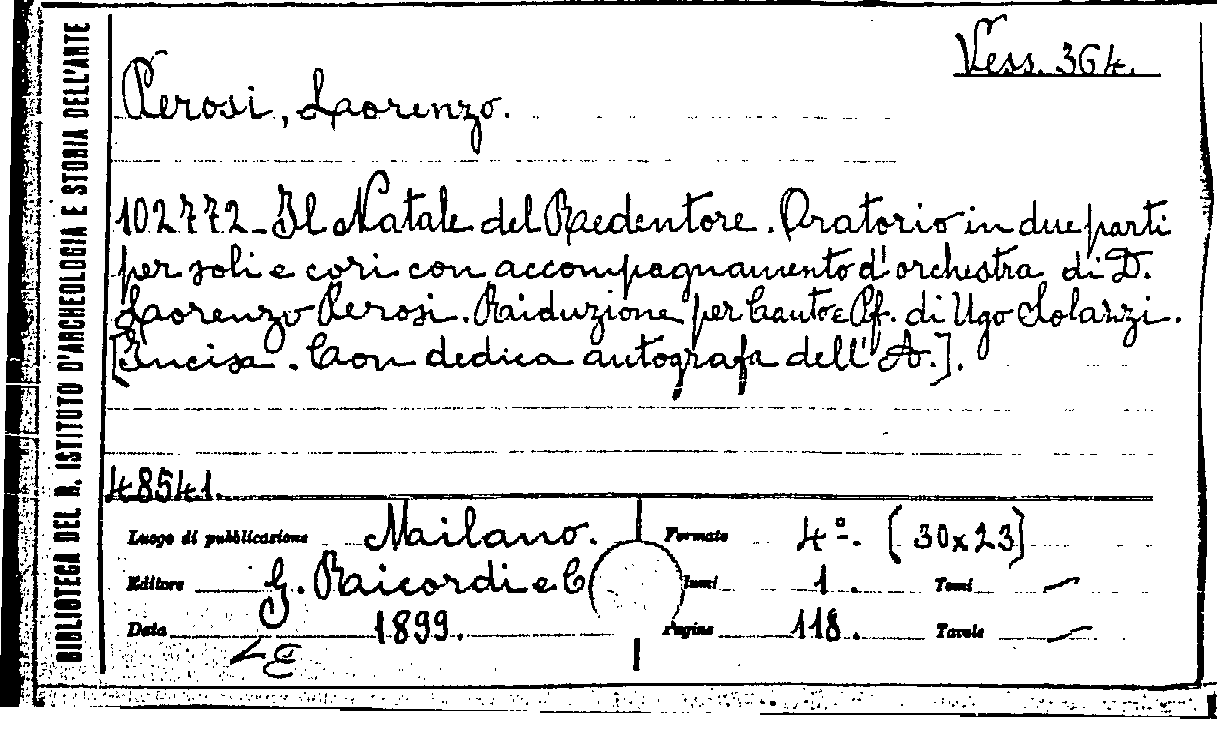 BIBLIOTECA DEL R. ISTITUTO D'ARCHEOLOGIA E STORIA DELL'ARTE
Vess. 364.
Perosi, Lorenzo.
102772 - Il Natale del Redentore. Oratorio in due parti
per soli e cori con accompagnamento d'orchestra di D.
Lorenzo Perosi. Riduzione per Canto e Pf. di Ugo Solazzi.
[Incisa. Con dedica autografa dell'A.].
48541.
Luogo di pubblicazione Milano. Formato 4º. (30x23)
Editore G. Ricordi e C 1. Tomi —
Data 1899. Pagine 118. Tavole —